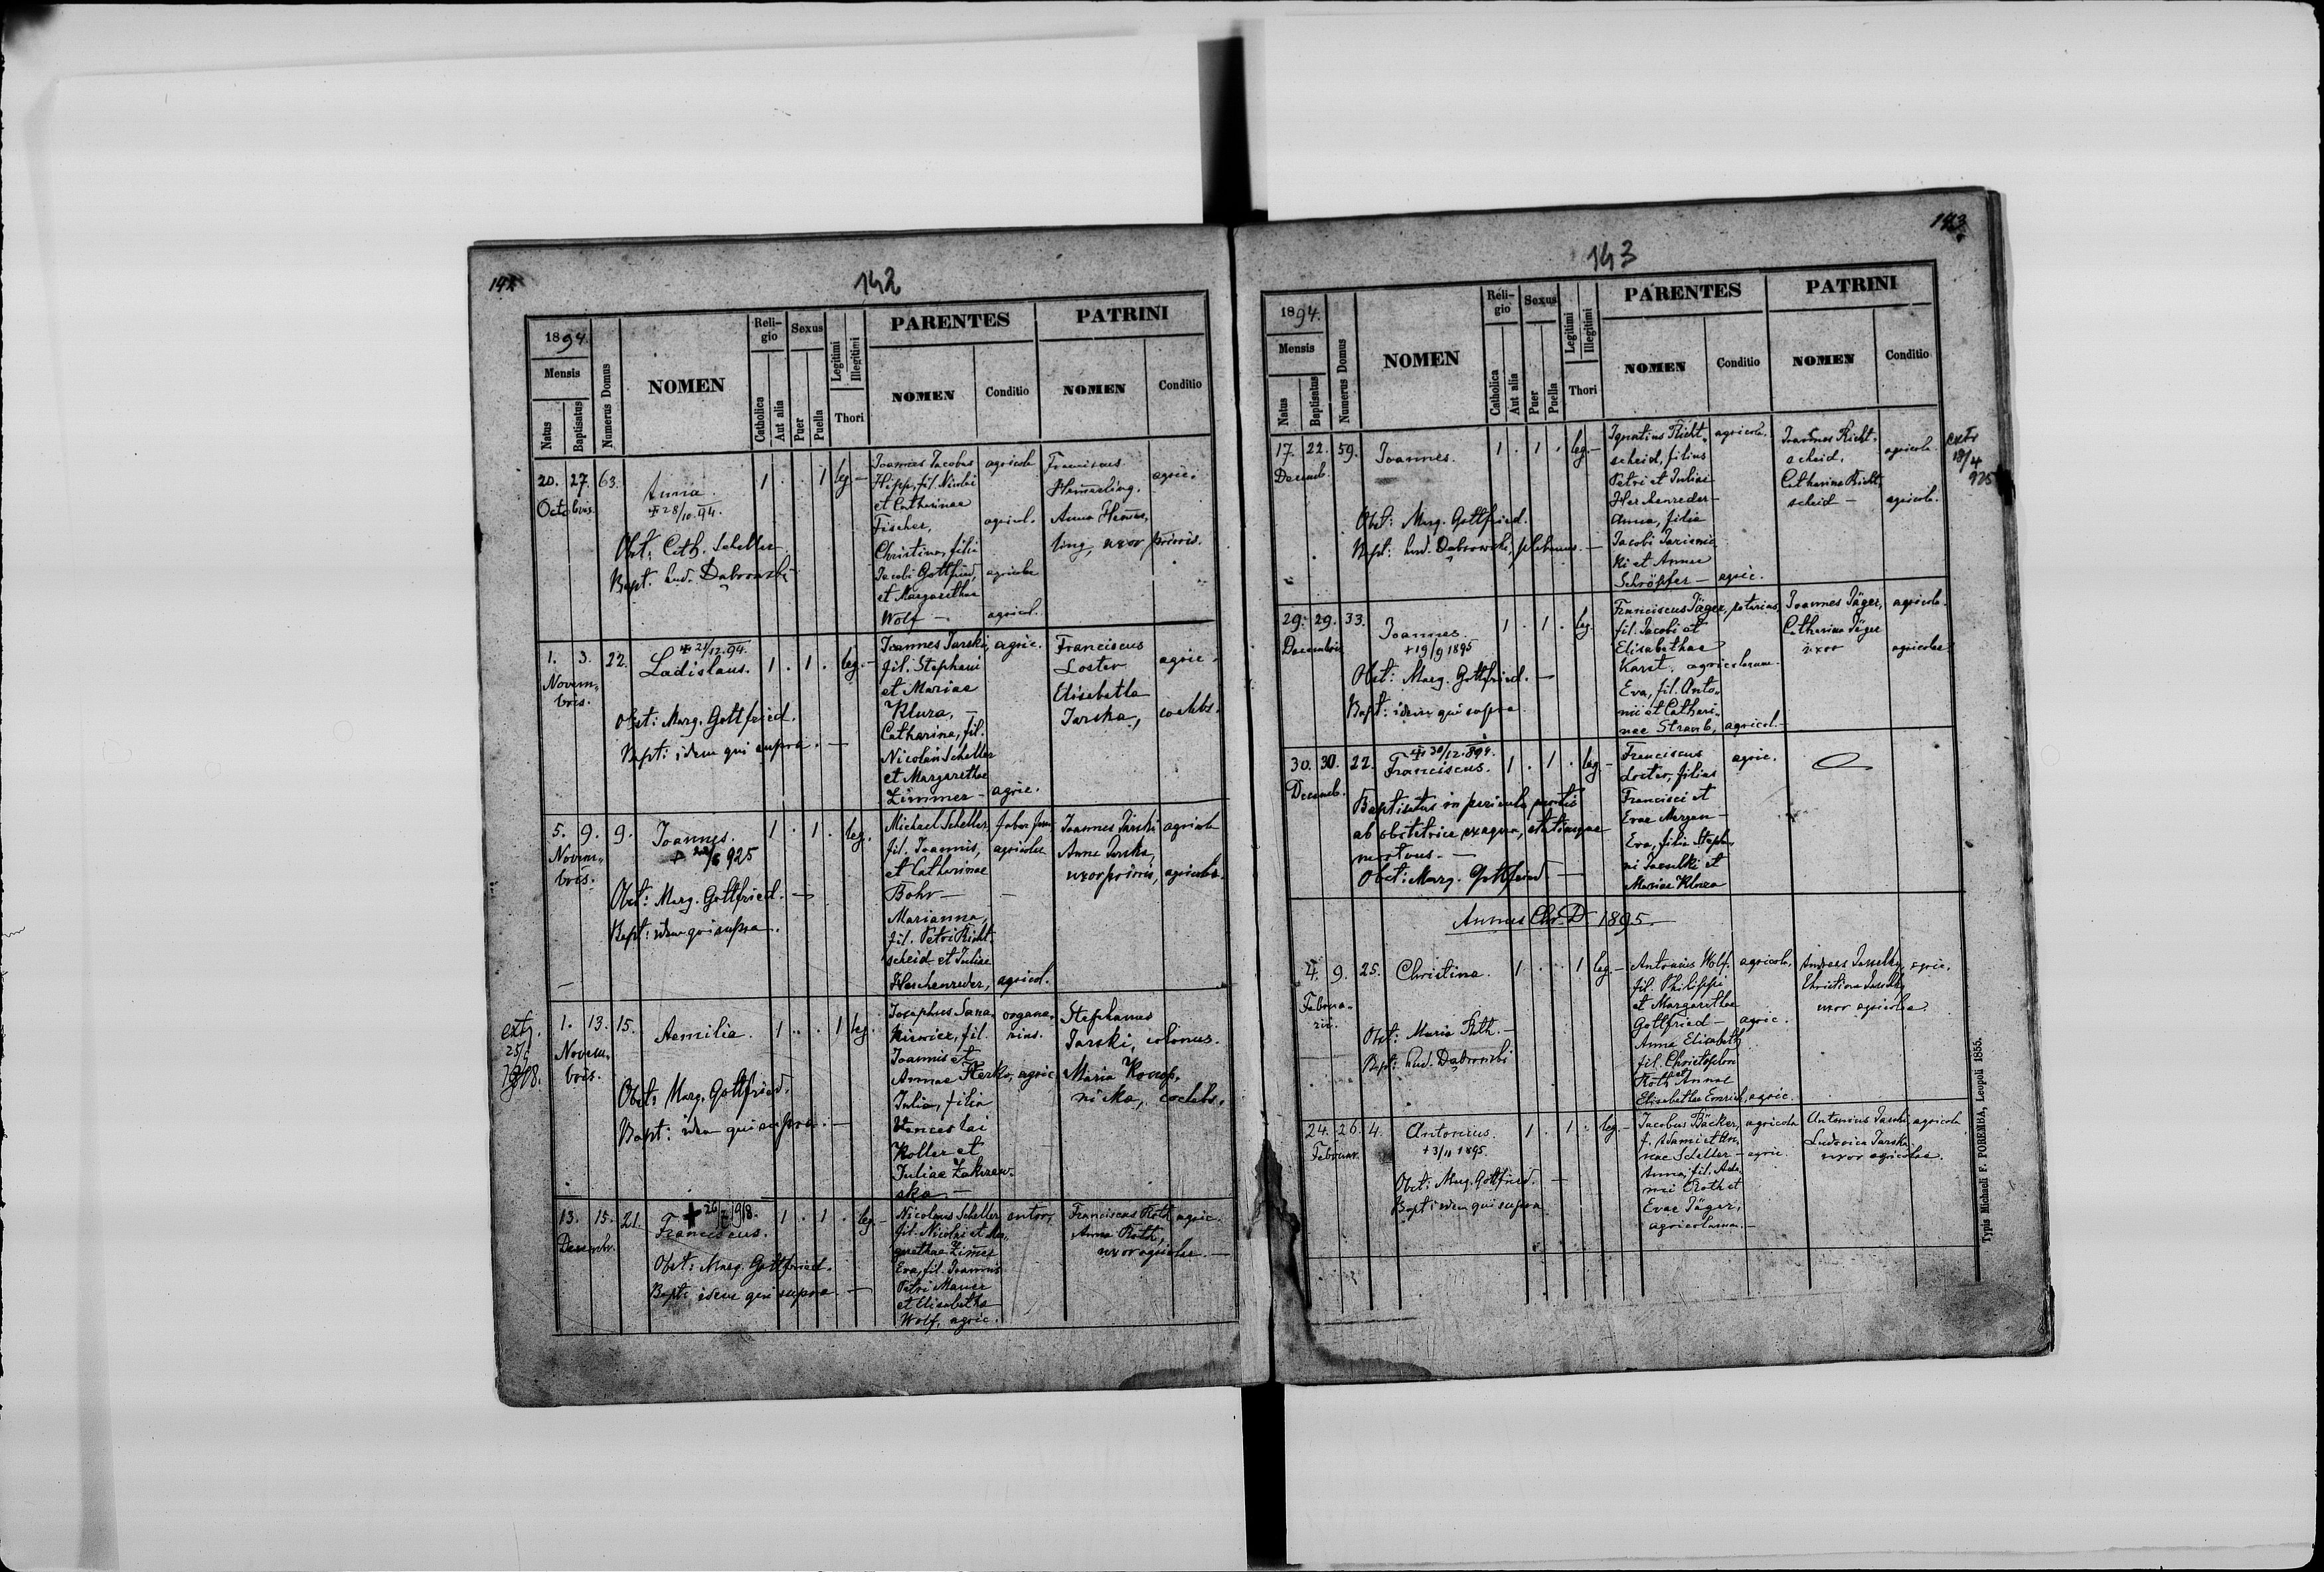 142
1894.
Mensis
Natus
Baptisatus
Numerus Domus
NOMEN
Reli-
gio
Catholica
Aut alia
Sexus
Puer
Puella
Legitimi
Illegitimi
Thori
PARENTES
NOMEN
Conditio
PATRINI
NOMEN
Conditio
20. 27. 63.
Octobris.
Anna.
28/10.94.
Obst: Cath. Scheller.
Bapt. Lud. Dabrowski
1 . . 1 leg. —
Joannes Jacobus
Hipp, fil. Nicolai
et Catharinae
Fischer,
Christina, filia
Jacobi Gottfried,
et Margarethae
Wolf —
agricola
agricol.
agricolae
agricol.
Franciscus
Hemerling,
Anna Hemer,
ling, uxor prioris.
agric.
1. 3. 22.
Novem„
bris.
21/12.94.
Ladislaus.
Obst: Marg. Gottfried.
Bapt: idem qui supra. —
1 . 1 . leg. —
Joannes Jarski, agric.
fil. Stephani
et Mariae
Klura, —
Catharina, fil.
Nicolai Scheller
et Margarethae
Zimmer — agric.
Franciscus
Loster
Elisabetha
Jarska,
agric.
coelebs.
5. 9. 9.
Novem„
bris.
Joannes.
925
Obst: Marg. Gottfried. —
Bapt: idem qui supra.
1 . 1 . leg.
Michael Scheller,
fil. Joannis,
et Catharinae
Bohr —
Marianna,
fil. Petri Richt„
scheid et Juliae
Herchenreder, agricol.
agricolae
Joannes Jarski agricola
Anna Jarska,
uxor prioris, agricola.
extr.
25/5
1918.
1. 13. 15.
Novem„
bris.
Aemilia.
Obst: Marg. Gottfried.
Bapt: idem qui supra. —
1 . . 1 leg.
Josephus Sana„
kiewicz, fil.
Joannis et
Annae Herko, agric.
Julia, filia
Venceslai
Koller et
Juliae Zakrzew„
ska —
organa„
rius.
Stephanus
Jarski, colonus.
Maria Konop„
nicka, coelebs.
13. 15. 21.
Decembr.
1918.
Franciscus.
Obst: Marg. Gottfried.
Bapt: idem qui supra —
1 . 1 . leg. —
Nicolaus Scheller
fil. Nicolai et Mar„
garethae Zimer
Eva, fil. Joannis
Petri Mauer
et Elisabetha
Wolf, agric.
sutor,
Franciscus Roth agric.
Anna Roth,
uxor agricolae. —
143
143
1894.
Mensis
Natus
Baptisatus
Numerus Domus
NOMEN
Reli-
gio
Catholica
Aut alia
Sexus
Puer
Puella
Legitimi
Illegitimi
Thori
PARENTES
NOMEN
Conditio
PATRINI
NOMEN
Conditio
17. 22. 59.
Decemb.
Joannes.
Obst: Marg. Gottfried.
Bapt: Lud. Dabrowski, plebanus. —
1 . 1 . leg. —
Ignatius Richt„
scheid, filius
Petri et Juliae
Herchenreder —
Anna, filia
Jacobi
ki et Annae
Schröpfer — agric.
agricola.
Joannes Richt„
scheid,
Catharina Richt„
scheid —
agricola.
agricola.
extr
18/4
925
29. 29. 33.
Decembris
Joannes.
+19/9 1895
Obst: Marg. Gottfried. —
Bapt: idem qui supra
1 . 1 . leg.
Franciscus Jäger,
fil. Jacobi et
Elisabethae
Karst, agricolarum.
Eva, fil. Anto„
nii et Cathari„
nae Straub, agricol. —
Joannes Jäger,
Catharina Jäger
uxor
agricola.
agricolae
30. 30. 22.
Decemb.
30/12.894.
Franciscus.
Baptisatus in periculo mortis
ab obstetrice ex aqua, statimque
mortuus. —
Obst: Marg. Gottfried —
1 . 1 . leg. —
Franciscus
Loster, filius
Francisci et
Evae Mergen —
Eva, filia Steph„
ni Jarski et
Mariae Klura
agric.
Annus Chr. D. 1895.
4. 9. 25.
Februa„
rii.
Christina.
Obst: Maria Roth. —
Bapt: Lud. Dabrowski
1 . . 1 leg. —
Antonius Wolf.
fil. Philippi
et Margarethae
Gottfried — agric.
Anna Elisabeth
fil. Christophori
Roth et Annae
Elisabethae Emrich, agric.
agricola,
Christina
uxor agricolae
agric.
24. 26. 4.
Februar.
Antonius.
+3/11 1895.
Obst: Marg. Gottfried. —
Bapt: idem qui supra
1 . 1 . leg. —
Jacobus Bäcker,
f. Adami et An„
nae Scheller — agric.
Anna, fil. Ada„
mi Roth et
Evae Jäger,
agricolarum. —
agricola
Antonius Jarski, agricola
Ludovica Jarska
uxor agricolae.
Typis Michaeli F. POREMBA, Leopoli 1855.